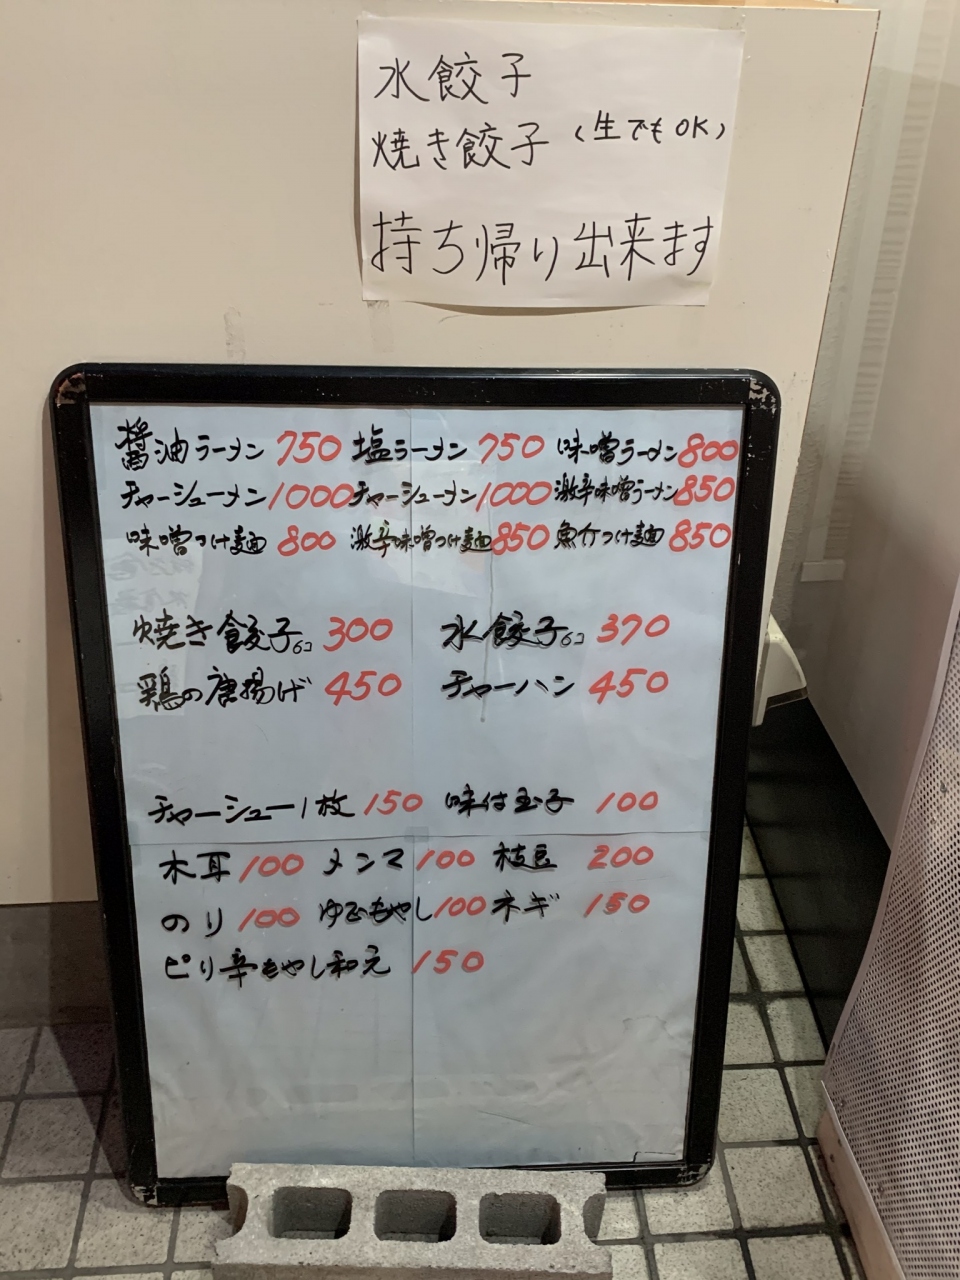 水餃子
焼き餃子 (生でもOK)
持ち帰り出来ます
醤油ラーメン 750 塩ラーメン 750 味噌ラーメン 800
チャーシューメン 1000 チャーシューメン 1000 激辛味噌ラーメン 850
味噌つけ麺 800 激辛味噌つけ麺 850 魚介つけ麺 850
焼き餃子6コ 300 水餃子6コ 370
鶏の唐揚げ 450 チャーハン 450
チャーシュー1枚 150 味付玉子 100
木耳 100 メンマ 100 枝豆 200
のり 100 ゆでもやし 100 ネギ 150
ピリ辛もやし和え 150